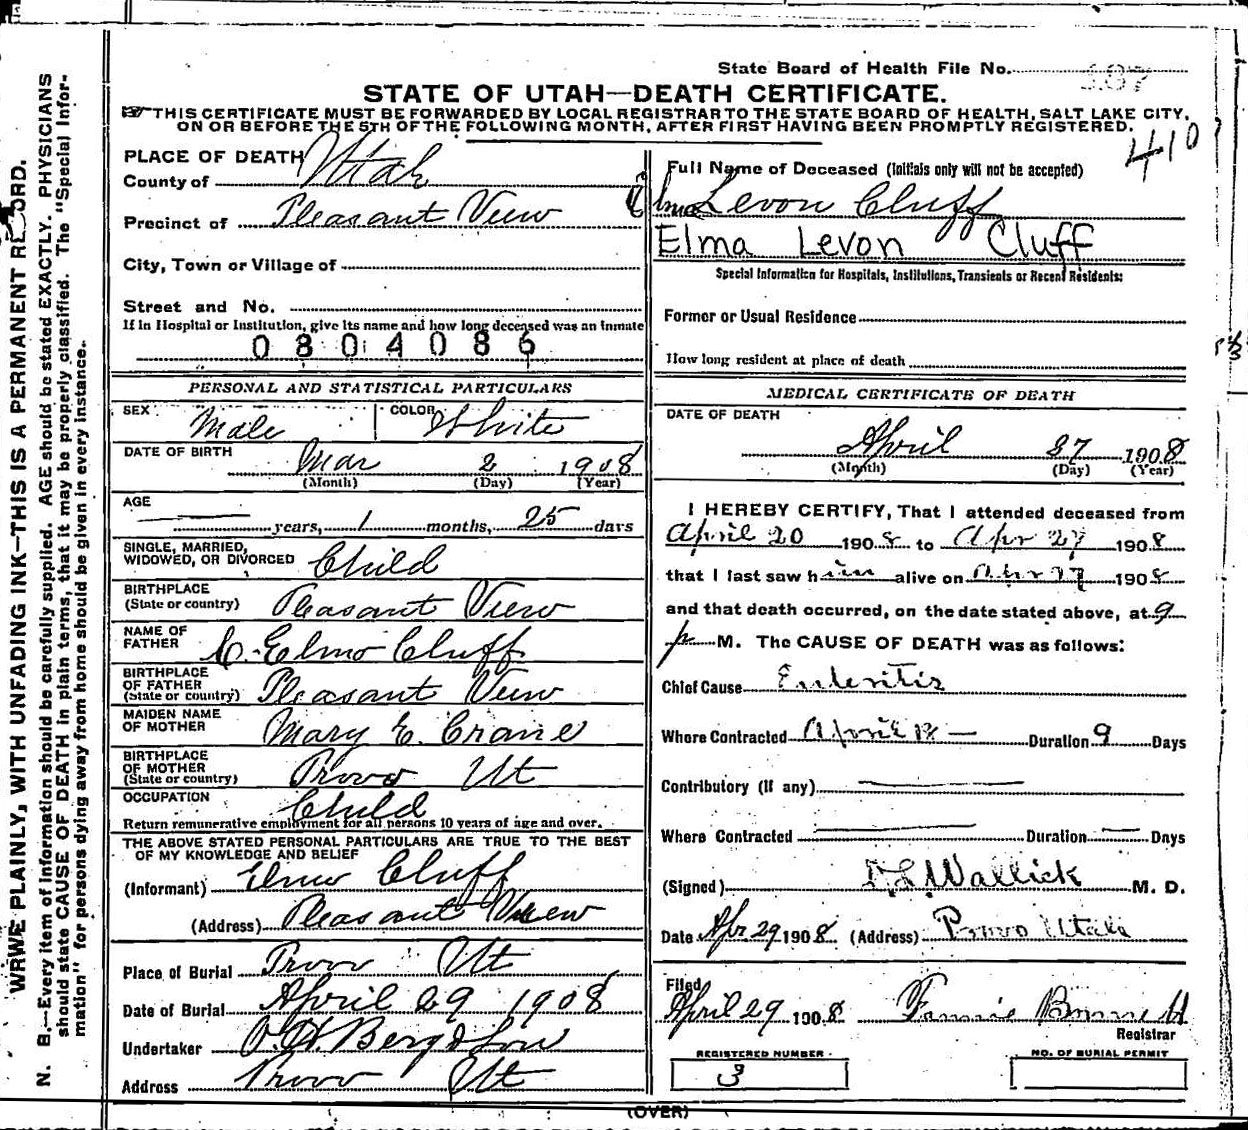 State Board of Health File No. 107
STATE OF UTAH—DEATH CERTIFICATE.
THIS CERTIFICATE MUST BE FORWARDED BY LOCAL REGISTRAR TO THE STATE BOARD OF HEALTH, SALT LAKE CITY,
ON OR BEFORE THE 5TH OF THE FOLLOWING MONTH, AFTER FIRST HAVING BEEN PROMPTLY REGISTERED.
410
PLACE OF DEATH
County of Utah
Precinct of Pleasant View
City, Town or Village of
Street and No.
If in Hospital or Institution, give its name and how long deceased was an inmate
0804086
PERSONAL AND STATISTICAL PARTICULARS
SEX Male COLOR White
DATE OF BIRTH Mar 2 1908
(Month) (Day) (Year)
AGE
— years, 1 months, 25 days
SINGLE, MARRIED,
WIDOWED, OR DIVORCED Child
BIRTHPLACE
(State or country) Pleasant View
NAME OF
FATHER C. Elmo Cluff
BIRTHPLACE
OF FATHER
(State or country) Pleasant View
MAIDEN NAME
OF MOTHER Mary E. Crane
BIRTHPLACE
OF MOTHER
(State or country) Provo Ut
OCCUPATION Child
Return remunerative employment for all persons 10 years of age and over.
THE ABOVE STATED PERSONAL PARTICULARS ARE TRUE TO THE BEST
OF MY KNOWLEDGE AND BELIEF
(Informant) Elmo Cluff
(Address) Pleasant View
Place of Burial Provo Ut
Date of Burial April 29 1908
Undertaker O.H. Berg & Son
Address Provo Ut
Full Name of Deceased (Initials only will not be accepted)
Elma Levon Cluff
Elma Levon Cluff
Special Information for Hospitals, Institutions, Transients or Recent Residents:
Former or Usual Residence
How long resident at place of death
MEDICAL CERTIFICATE OF DEATH
DATE OF DEATH
April 27 1908
(Month) (Day) (Year)
I HEREBY CERTIFY, That I attended deceased from
April 20 1908 to Apr 27 1908
that I last saw him alive on Apr 27 1908
and that death occurred, on the date stated above, at 9
p M. The CAUSE OF DEATH was as follows:
Chief Cause Enteritis
Where Contracted April 18 — Duration 9 Days
Contributory (if any) —
Where Contracted — Duration — Days
(Signed) Wallick M. D.
Date Apr 29 1908 (Address) Provo Utah
Filed
April 29 1908 Fannie
Registrar
REGISTERED NUMBER
3
NO. OF BURIAL PERMIT
(OVER)
WRWE PLAINLY, WITH UNFADING INK—THIS IS A PERMANENT RECORD.
N. B.—Every item of information should be carefully supplied. AGE should be stated EXACTLY. PHYSICIANS
should state CAUSE OF DEATH in plain terms, that it may be properly classified. The "Special Infor-
mation" for persons dying away from home should be given in every instance.